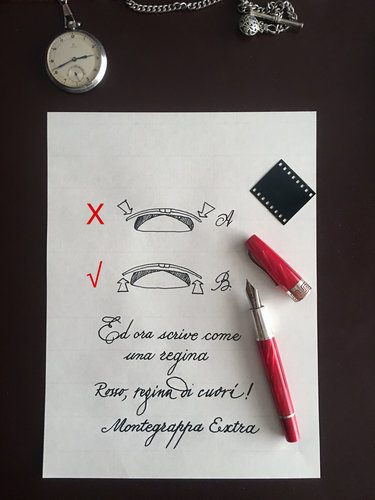 X A
√ B.
Ed ora scrive come
una regina
Rosso, regina di cuori!
Montegrappa Extra